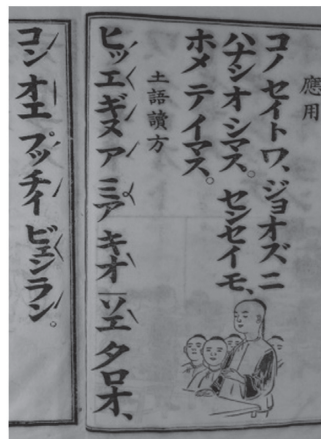 應用
コノ セイトワ、ジョオズ ニ
ハナシオ シマス。 センセイ モ、
ホメ テ イマス。
土語讀方
ヒッエギヌ ア ミア キオ ソエ タロオ、
コン オエ プッチイ ビェンラン。